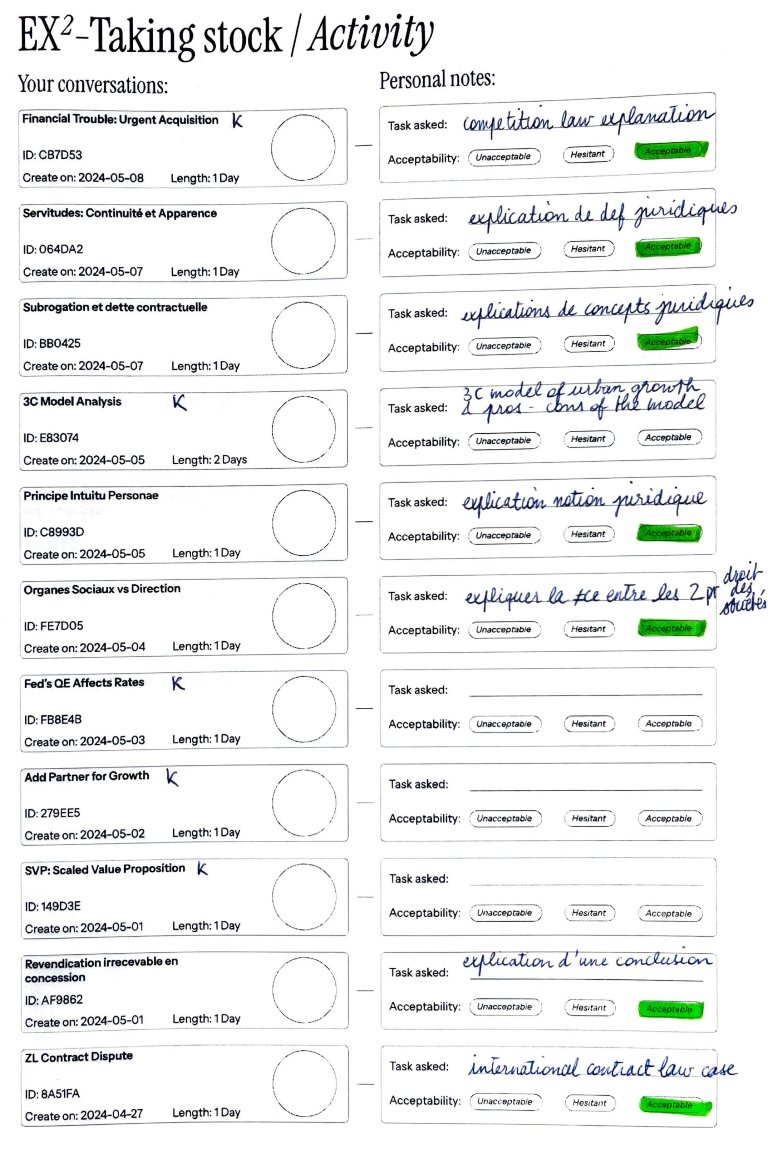 EX²-Taking stock / Activity
Your conversations:
Personal notes:
Financial Trouble: Urgent Acquisition K
ID: CB7D53
Create on: 2024-05-08 Length: 1 Day
Task asked: competition law explanation
Acceptability: Unacceptable Hesitant Acceptable
Servitudes: Continuité et Apparence
ID: 064DA2
Create on: 2024-05-07 Length: 1 Day
Task asked: explication de def juridiques
Acceptability: Unacceptable Hesitant Acceptable
Subrogation et dette contractuelle
ID: BB0425
Create on: 2024-05-07 Length: 1 Day
Task asked: explications de concepts juridiques
Acceptability: Unacceptable Hesitant Acceptable
3C Model Analysis K
ID: E83074
Create on: 2024-05-05 Length: 2 Days
3C model of urban growth
Task asked: & pros - cons of the model
Acceptability: Unacceptable Hesitant Acceptable
Principe Intuitu Personae
ID: C8993D
Create on: 2024-05-05 Length: 1 Day
Task asked: explication notion juridique
Acceptability: Unacceptable Hesitant Acceptable
Organes Sociaux vs Direction
ID: FE7D05
Create on: 2024-05-04 Length: 1 Day
Task asked: expliquer la ≠ce entre les 2 pr droit
des
sociétés
Acceptability: Unacceptable Hesitant Acceptable
Fed's QE Affects Rates K
ID: FB8E4B
Create on: 2024-05-03 Length: 1 Day
Task asked:
Acceptability: Unacceptable Hesitant Acceptable
Add Partner for Growth K
ID: 279EE5
Create on: 2024-05-02 Length: 1 Day
Task asked:
Acceptability: Unacceptable Hesitant Acceptable
SVP: Scaled Value Proposition K
ID: 149D3E
Create on: 2024-05-01 Length: 1 Day
Task asked:
Acceptability: Unacceptable Hesitant Acceptable
Revendication irrecevable en
concession
ID: AF9862
Create on: 2024-05-01 Length: 1 Day
Task asked: explication d'une conclusion
Acceptability: Unacceptable Hesitant Acceptable
ZL Contract Dispute
ID: 8A51FA
Create on: 2024-04-27 Length: 1 Day
Task asked: international contract law case
Acceptability: Unacceptable Hesitant Acceptable